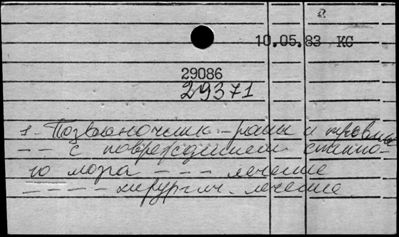 10.05.83 КС
29086
29371
1. Позвоночник - раны и травмы
-- с повреждением спинно-
го мозга --- лечение
---- хирургич. лечение